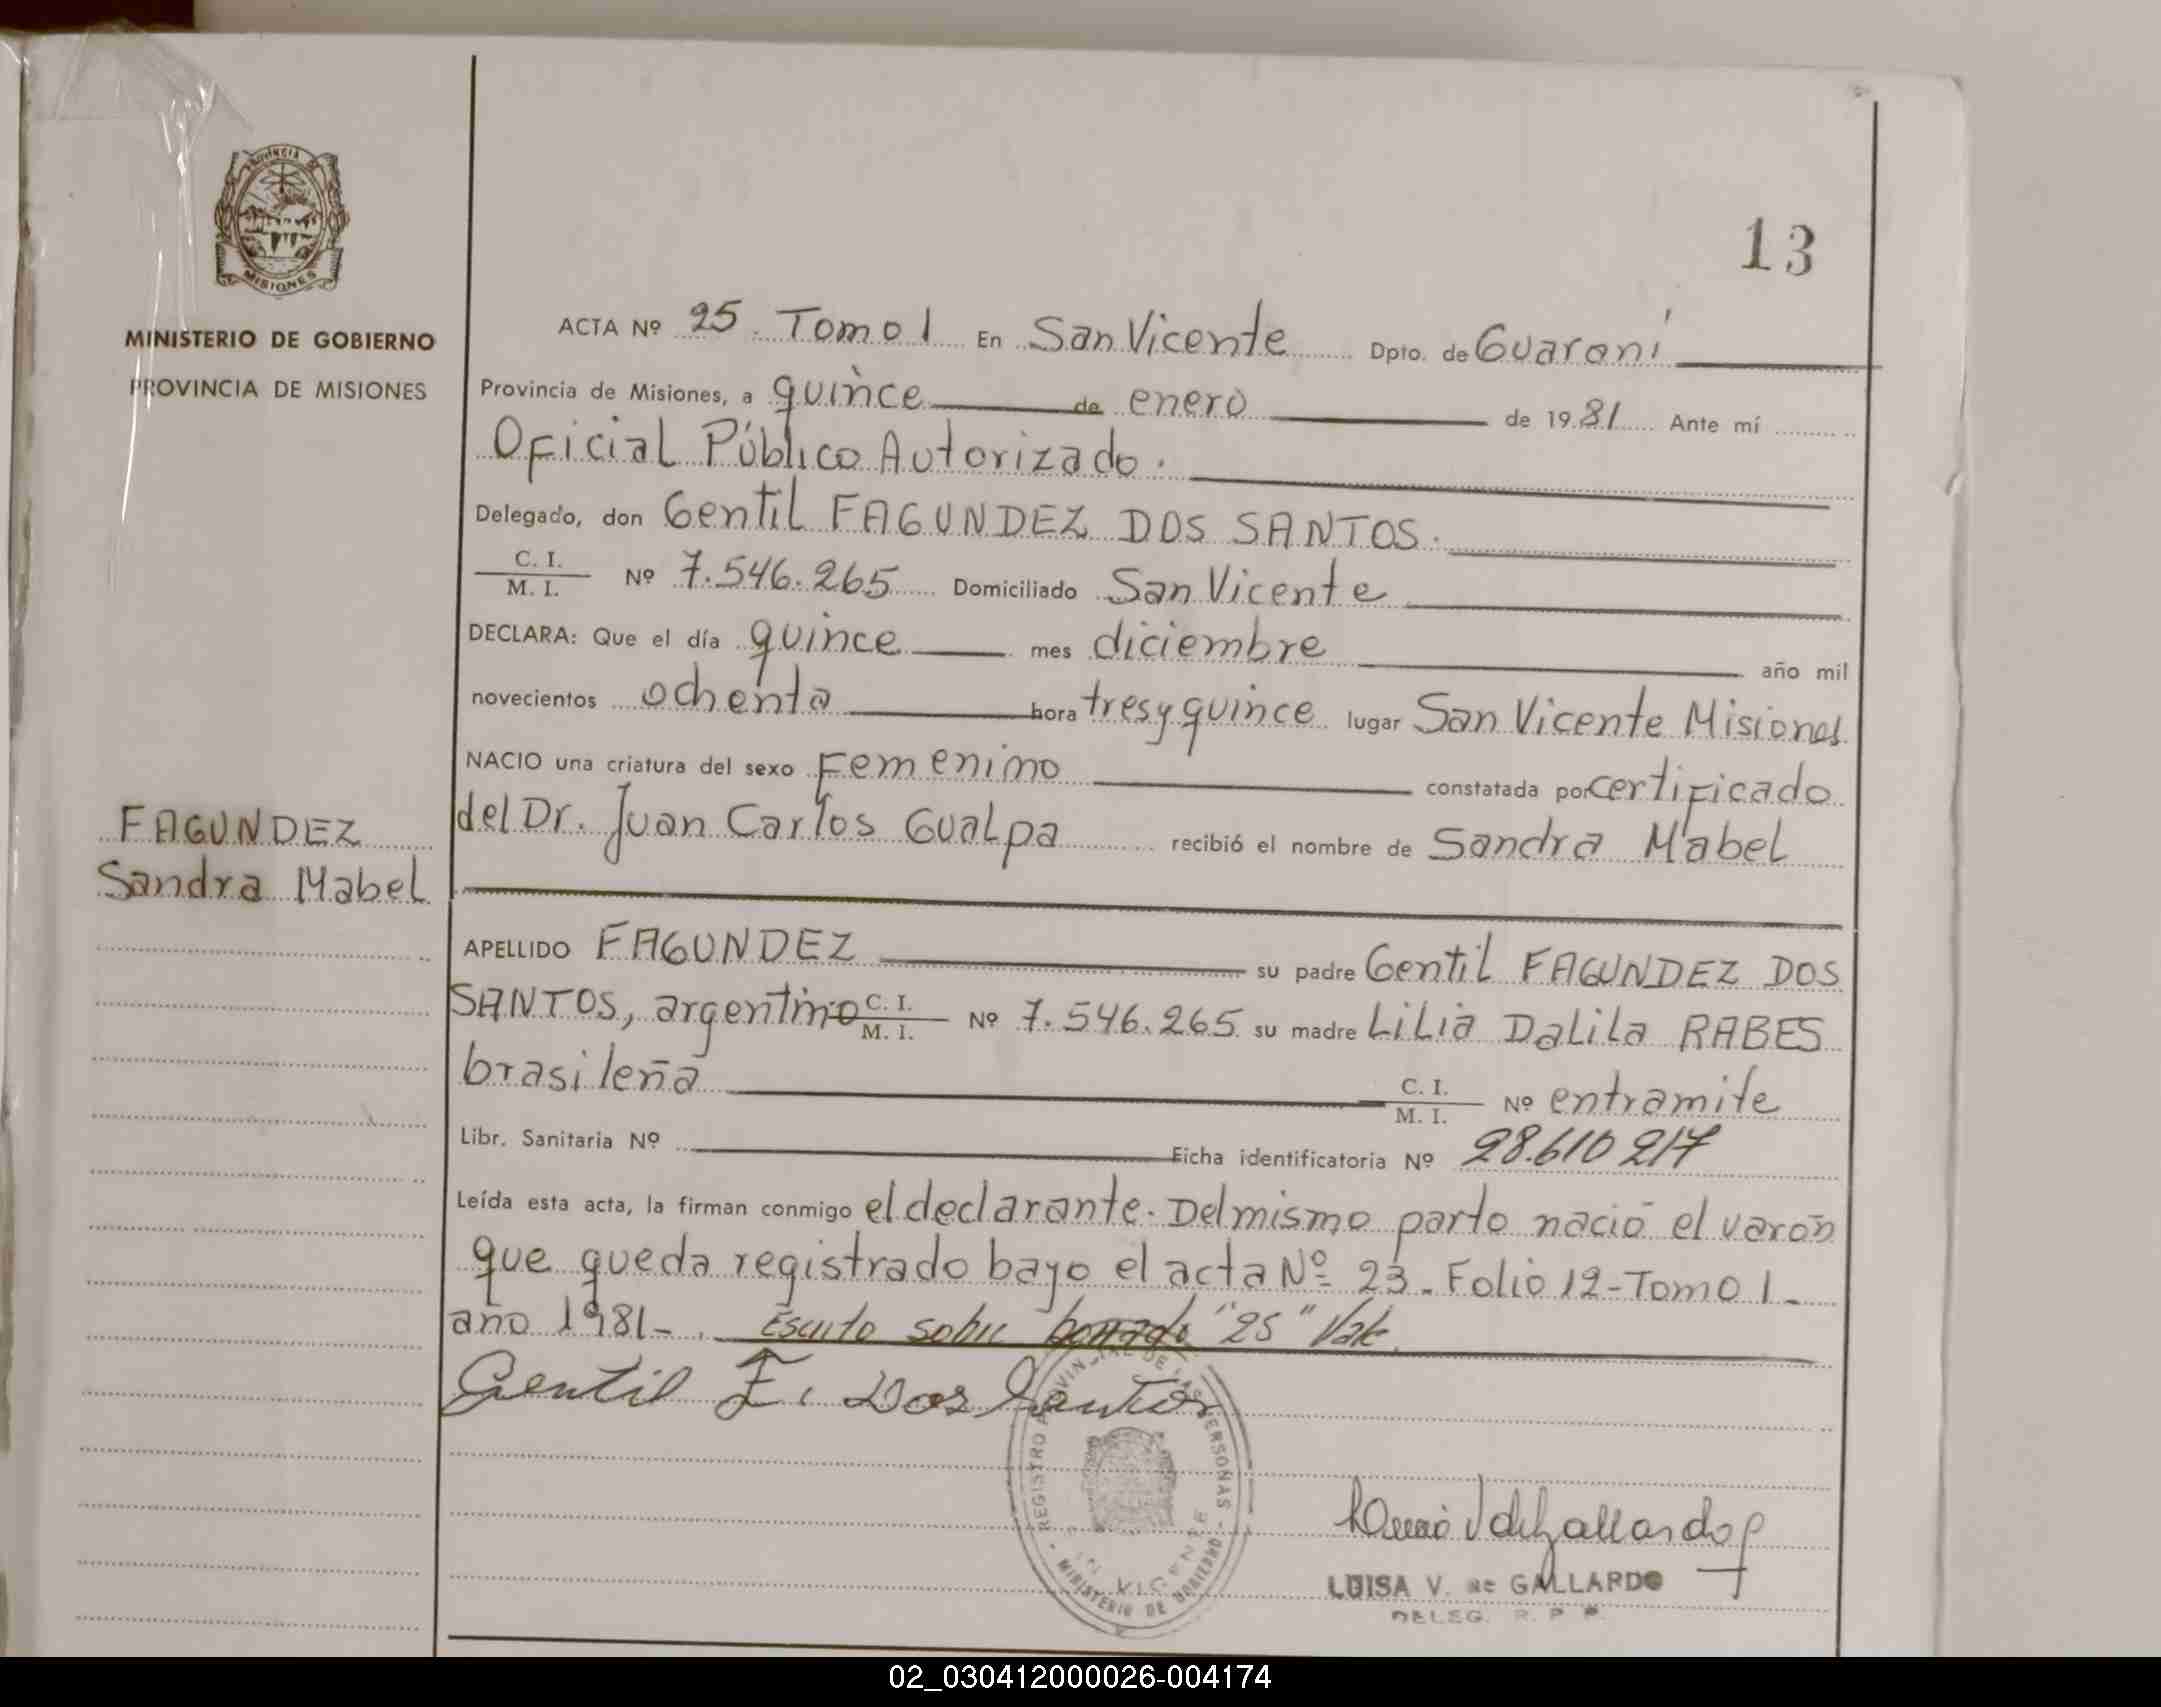 PROVINCIA DE
MISIONES
MINISTERIO DE GOBIERNO
PROVINCIA DE MISIONES
FAGUNDEZ
Sandra Mabel
13
ACTA Nº 25. Tomo 1 En San Vicente Dpto. de Guaraní
Provincia de Misiones, a quince de enero de 1981 Ante mí
Oficial Público Autorizado.
Delegado, don Gentil FAGUNDEZ DOS SANTOS.
C. I.
M. I. Nº 7.546.265 Domiciliado San Vicente
DECLARA: Que el día quince mes diciembre año mil
novecientos ochenta hora tres y quince lugar San Vicente Misiones
NACIO una criatura del sexo Femenino constatada por certificado
del Dr. Juan Carlos Gualpa recibió el nombre de Sandra Mabel
APELLIDO FAGUNDEZ su padre Gentil FAGUNDEZ DOS
SANTOS, argentino C. I. M. I. Nº 7.546.265 su madre Lilia Dalila RABES
brasileña C. I. M. I. Nº en tramite
Libr. Sanitaria Nº Ficha identificatoria Nº 28.610 217
Leída esta acta, la firman conmigo el declarante. Del mismo parto nació el varón
que queda registrado bajo el acta Nº 23. Folio 12-Tomo 1-
año 1981-. Escrito sobre borrado "25" Vale.
Gentil F. Dos Santos
REGISTRO PROVINCIAL DE LAS PERSONAS - MINISTERIO DE GOBIERNO -
SAN VICENTE
LUISA V. de GALLARDO
DELEG. R. P. P.
02_030412000026-004174